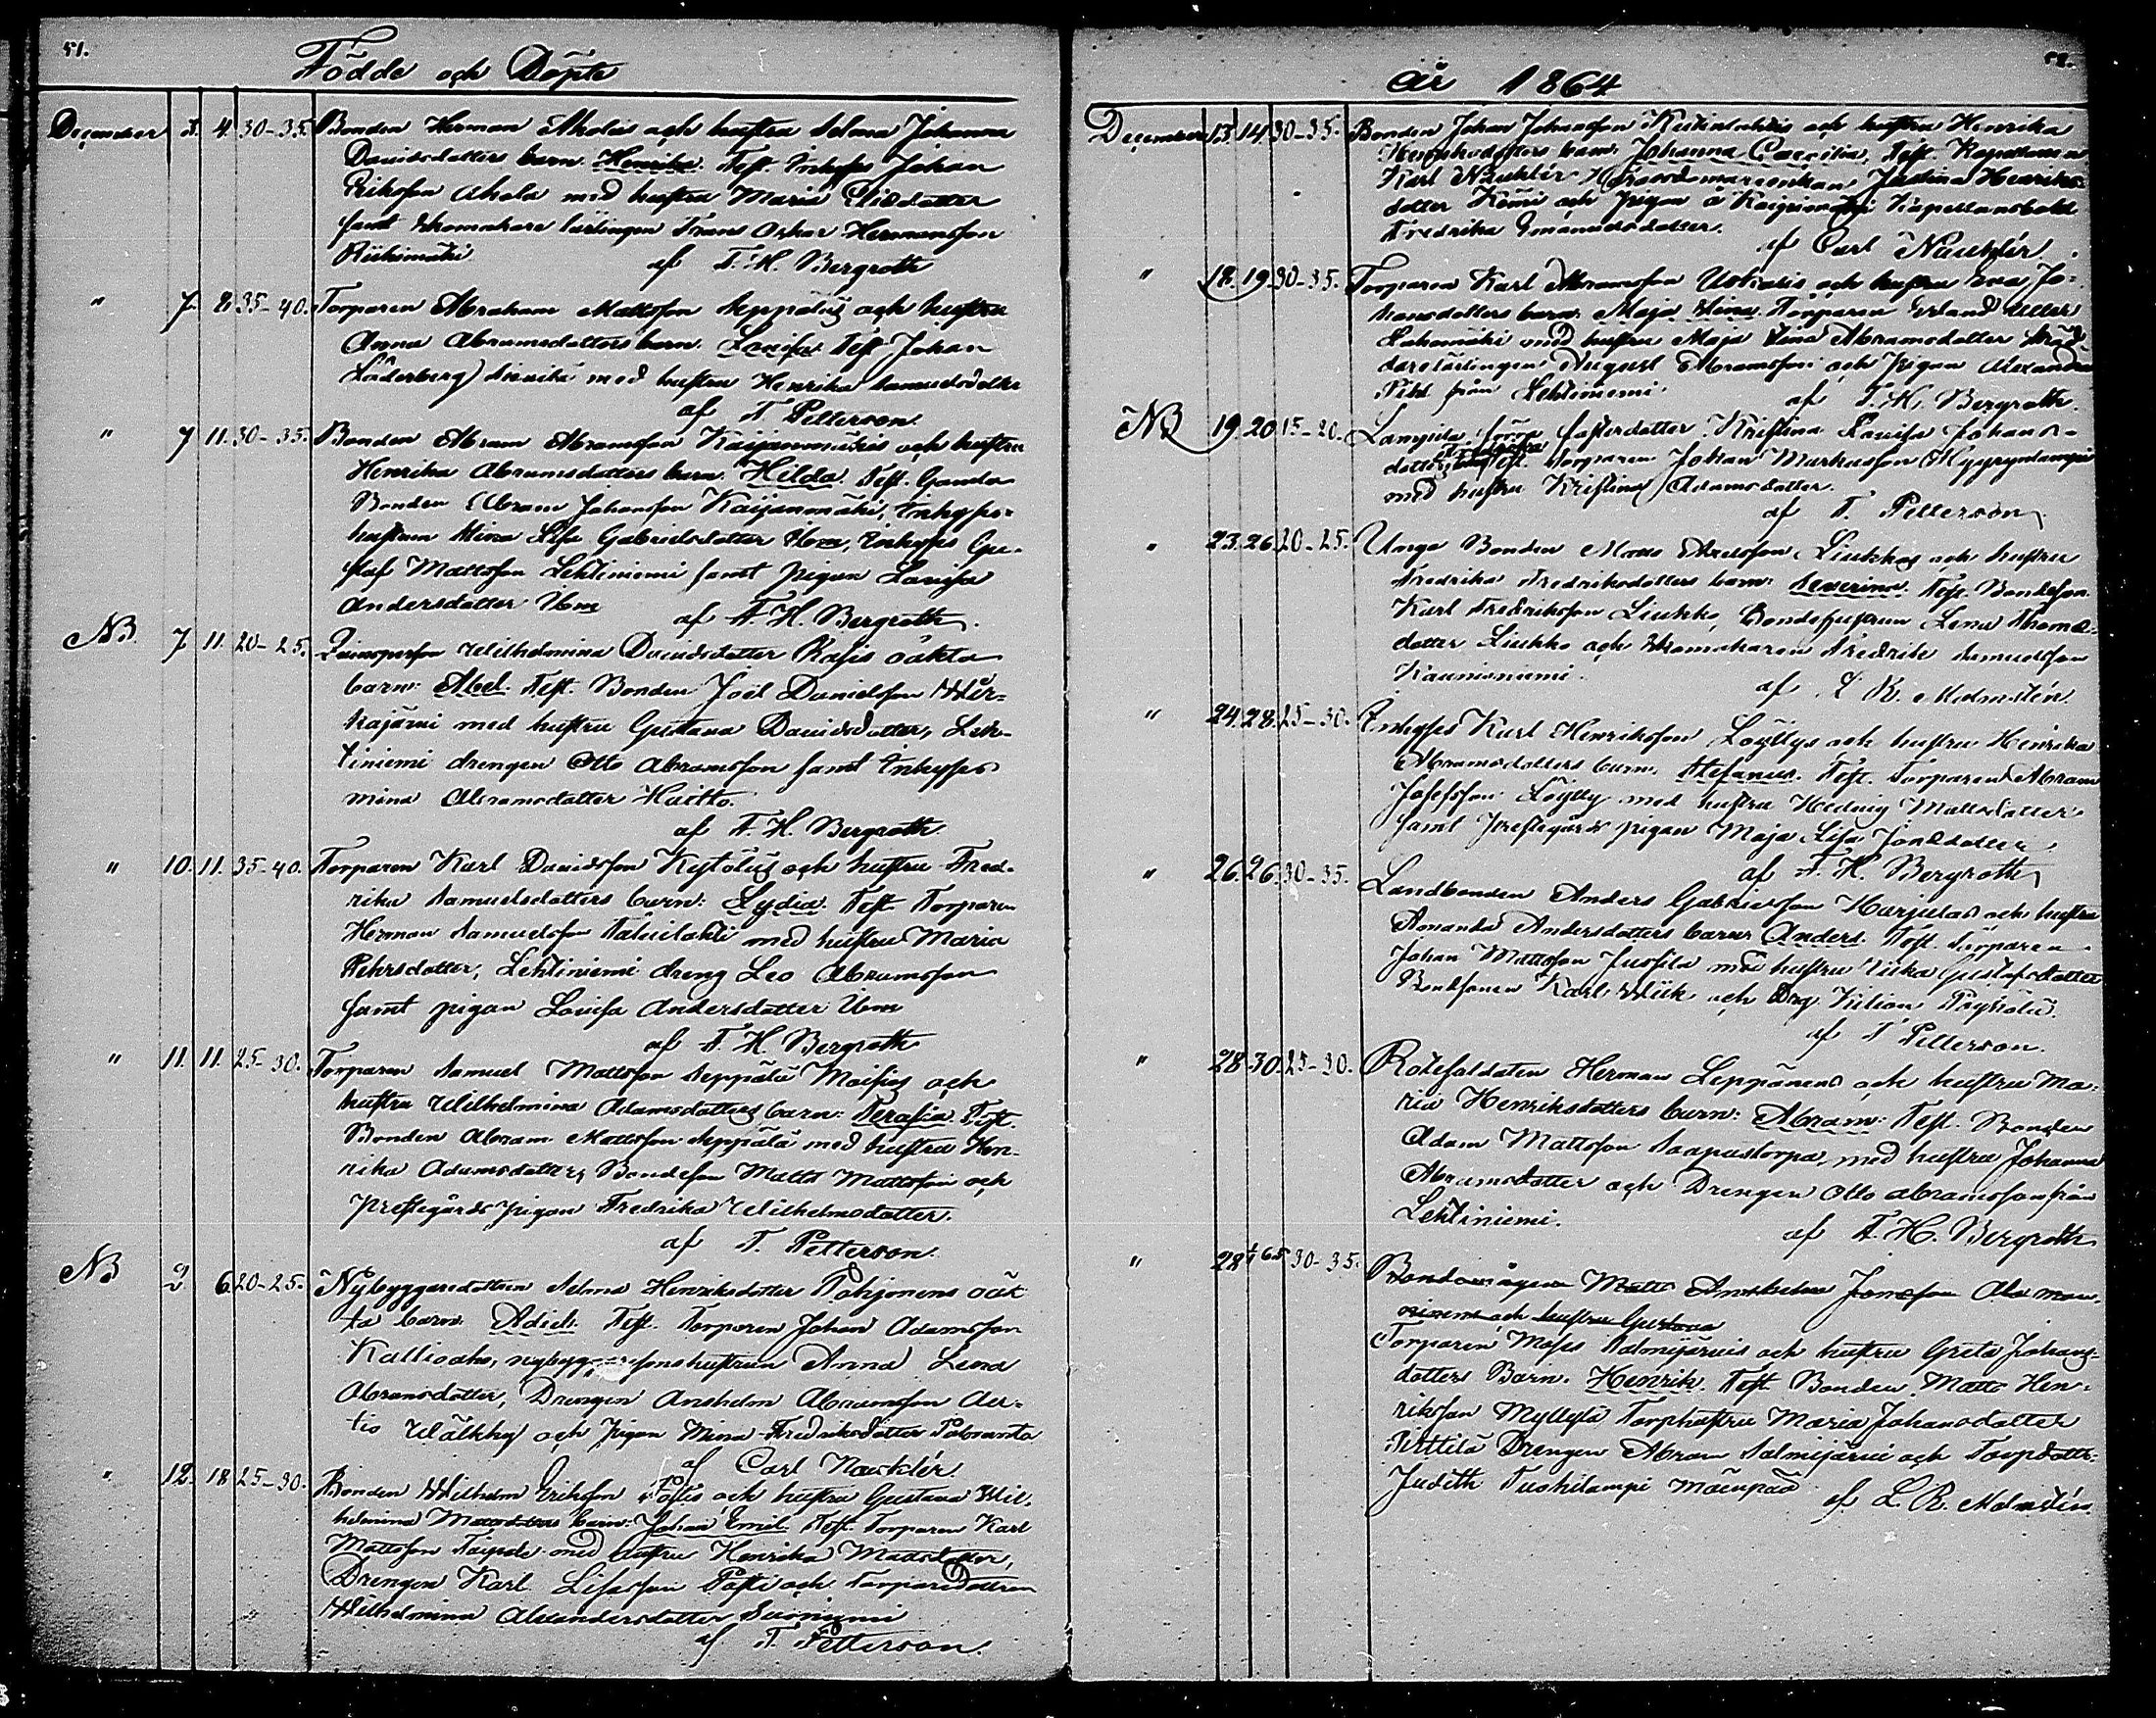 51.
Födde och Döpte
December 3. 4. 30-35. Bonden Herman Aholas och hustru Selma Johanna
Davidsdotters barn. Henrika. Test. Inhyses Johan
Eriksson Ahola med hustru Maria Elisdotter
samt skomakare lärlingen Frans Oskar Hermansson
Riihimäki af F. H. Bergroth
" 7. 8. 35-40. Torparen Abraham Mattsson Seppäläs och hustru
Anna Abramsdotters barn. Lovisa Test Johan
Söderberg med hustru Henrika Samuelsdotter
af T. Petterson.
" 7 11. 30-35. Bonden Abram Abramsson Kaijanmäkis och hustru
Henrika Abramsdotters barn. Hilda. Test. Gamla
Bonden Abram Johansson Kaijanmäki, Inhyses-
hustrun Stina Lisa Gabrielsdotter Ibm, Inhyses Gu-
staf Mattsson Lehtiniemi samt pigan Lovisa
Andersdotter Ibm af F. H. Bergroth.
NB. 7. 11. 20-25. Qvinsperson Wilhelmina Davidsdotter Rasis oäkta
barn: Abel. Test. Bonden Joel Danielsson
kajärvi med hustru Gustava Davidsdotter, Leh-
tiniemi drengen Otto Abramsson samt Inhyses
mina Abramsdotter Huitto.
af F. H. Bergroth
" 10. 11. 35-40. Torparen Karl Davidsson Kytöläs och hustru Fred-
rika Samuelsdotters barn: Lydia. Test. Torparen
Herman Samuelsson med hustru Maria
Pehrsdotter, Lehtiniemi dreng Leo Abramsson
samt pigan Lovisa Andersdotter Ibm
af F. H. Bergroth
" 11. 11. 25-30. Torparen Samuel Mattsson Seppälä Moisios och
hustru Wilhelmina Adamsdotters barn: Serafia. Test.
Bonden Abram Mattsson Seppälä med hustru Hen-
rika Adamsdotter, Bondeson Matts Mattsson och
prestegårds pigan Fredrika Wilhelmsdotter.
af T. Petterson.
NB 2 6 20-25. Nybyggaredottren Selma Henriksdotter Pohjonens oäk
ta barn. Adiel. Test. Torparen Johan Adamsson
Kallioaho, hustrun Anna Lena
Abramsdotter, Drengen Anshelm Abramsson Au-
tio Wälkky och Pigan Mina Fredriksdotter Paloranta
af Carl Nauklér.
" 12. 18 25-30. Bonden Wilhelm Eriksson Postis och hustru Gustava Wil-
helmina Mattsdotters barn: Johan Emil. Test. Torparen Karl
Mattsson Taipale med hustru Henrika Mattsdotter,
Drengen Karl Posti och Torparedottren
Wilhelmina Alexandersdotter Suoniemi
af T. Petterson.
år 1864
December 13. 14. 30-35. Bonden Johan Johansson och hustru Henrika
Henriksdotters barn. Johanna Caecilia, Test. Kapellanen
Karl Nauklér Justina Henriks-
dotter Kömi och pigan å Kapellansbolet
Fredrika Emanuelsdotter.
af Carl Nauklér.
" 18. 19. 30-35. Torparen Karl Abramsson och hustru Eva Jo-
hansdotters barn. Maja Stina. Torparen Erland
Lahomäki med hustru Maja Stina Abramsdotter Skräd-
darelärlingen August Abramsson och pigan Alexandra
från Lehtiniemi. af F. H. Bergroth.
NB 19. 20. 15-20. fosterdotter Kristina Lovisa Johans-
dotters Test. Torparen Johan Markusson
med hustru Kristina Adamsdotter.
af T. Petterson
" 23. 26. 20-25. Unge Bonden Axelsson Liukkos och hustru
Fredrika Fredriksdotters barn: Severina. Test. Bondeson
Karl Fredriksson Liukko, Bondehustrun Lena Thomæ-
dotter Liukko och skomakaren Fredrik Samuelsson
Kauniiniemi.
af L R. Malmstén.
" 24. 28. 25-30. Inhyses Karl Henriksson Löyttys och hustru Henrika
Abramsdotters barn. Stefanus. Test. Torparen Abram
Josefsson Löytty med hustru Hedvig Mattsdotter
samt Prestegårds pigan Maja Lisa
af F. H. Bergroth
" 26. 26. 30-35. Landbonden Anders Gabrielsson Harjulas och hustru
Amanda Andersdotters barn Anders. Test. Torparen
Johan Mattsson Jussila med hustru Gustafsdotter
Bondsonen Karl Wiik och
af T Petterson.
" 28. 30. 25-30. Rotesoldaten Herman Leppänens och hustru Ma-
ria Henriksdotters barn: Abram: Test. Bonden
Adam Mattsson Saapastorpa, med hustru Johanna
Abramsdotter och Drengen Otto Abramsson från
Lehtiniemi.
af F. H. Bergroth
" 28 1/1 65 30-35.
och hustru Gustava
Torparen Moses Salmijärvis och hustru Greta Johans-
dotters Barn. Henrik. Test. Bonden Matts Hen-
riksson Myllylä Torphustru Maria Johansdotter
Perttilä Drengen Abram Salmijärvi och Torpdottr.
Judith
af L. R. Malmstén.